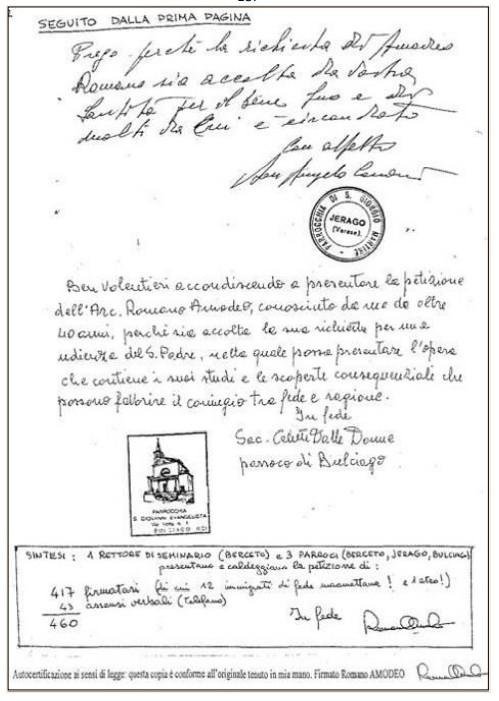 SEGUITO DALLA PRIMA PAGINA
Prego perché la richiesta di Amadeo
Romano sia accolta da Vostra
Santità per il bene suo e di
molti da cui è circondato
Con affetto
Don Angelo
PARROCCHIA DI S. GIORGIO MARTIRE
JERAGO
(Varese)
Ben volentieri accondiscendo a presentare la petizione
dell'Arc. Romano Amodeo, conosciuto da me da oltre
40 anni, perché sia accolta la sua richiesta per una
udienza del S. Padre, nella quale possa presentare l'opera
che contiene i suoi studi e le scoperte consequenziali che
possono favorire il coniugio tra fede e ragione.
In fede
Sac. Dalle Donne
parroco di Bulciago
PARROCCHIA
S. GIOVANNI EVANGELISTA
BULCIAGO (CO)
SINTESI : 1 RETTORE DI SEMINARIO (BERCETO) e 3 PARROCI (BERCETO, JERAGO, BULCIAGO)
presentano e caldeggiano la petizione di :
417 firmatari (di cui 12 immigrati di fede maomettana ! e 1 ateo!)
43 assensi verbali (telefono)
460
In fede
Autocertificazione ai sensi di legge: questa copia è conforme all'originale tenuto in mia mano. Firmato Romano AMODEO